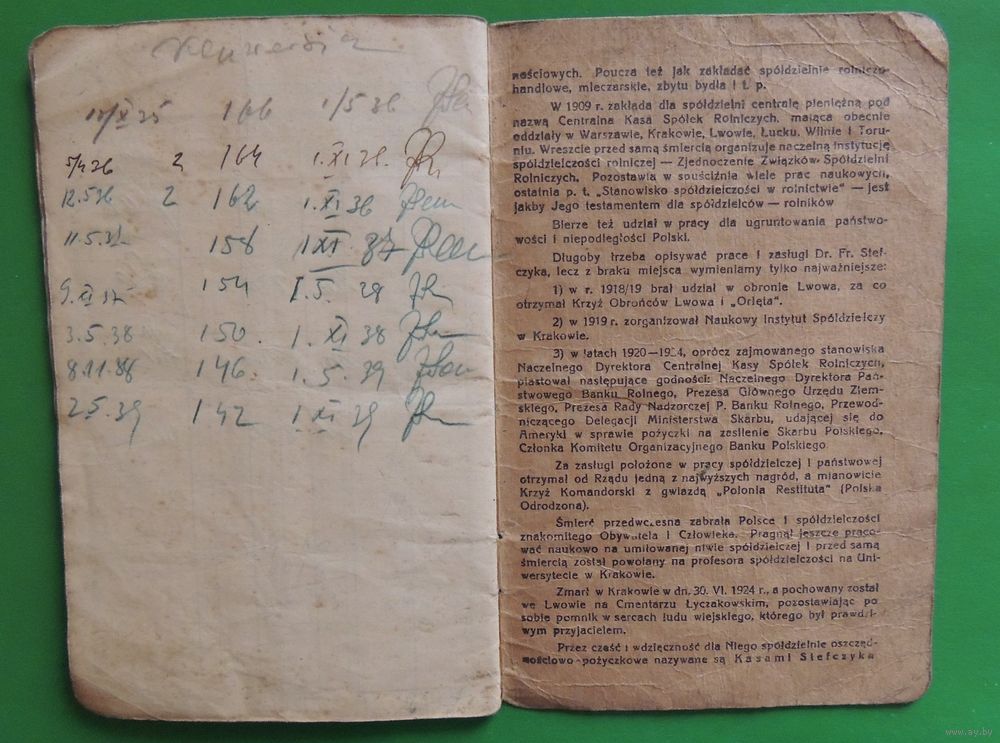 10/XI 35 166 1/5 36
5/4 36 2 164 1.XI 36.
12.5 36 2 162 1.XI 36
11.5.37 158 1 XI 37
9.XI 37 154 1.5. 38
3.5.38 150. 1.XI 38
8.11.38 146. 1.5.39
2.5.39 142 1 XI 39
nościowych. Poucza też jak zakładać spółdzielnie rolniczo-
handlowe, mleczarskie, zbytu bydła i t. p.
W 1909 r. zakłada dla spółdzielni centralę pieniężną pod
nazwą Centralna Kasa Spółek Rolniczych, mająca obecnie
oddziały w Warszawie, Krakowie, Lwowie, Łucku, Wilnie i Toru-
niu. Wreszcie przed samą śmiercią organizuje naczelną instytucję
spółdzielczości rolniczej — Zjednoczenie Związków Spółdzielni
Rolniczych, Pozostawia w souściźnie wiele prac naukowych,
ostatnia p. t. „Stanowisko spółdzielczości w rolnictwie“ — jest
jakby Jego testamentem dla spółdzielców — rolników
Bierze też udział w pracy dla ugruntowania państwo-
wości i niepodległości Polski.
Długoby trzeba opisywać prace i zasługi Dr. Fr. Stef-
czyka, lecz z braku miejsca wymieniamy tylko najważniejsze:
1) w r. 1918/19 brał udział w obronie Lwowa, za co
otrzymał Krzyż Obrońców Lwowa i „Orlęta“.
2) w 1919 r. zorganizował Naukowy Instytut Spółdzielczy
w Krakowie.
3) w latach 1920—1924, oprócz zajmowanego stanowiska
Naczelnego Dyrektora Centralnej Kasy Spółek Rolniczych,
piastował następujące godności: Naczelnego Dyrektora Pań-
stwowego Banku Rolnego, Prezesa Głównego Urzędu Ziem-
skiego, Prezesa Rady Nadzorczej P. Banku Rolnego, Przewod-
niczącego Delegacji Ministerstwa Skarbu, udającej się do
Ameryki w sprawie pożyczki na zasilenie Skarbu Polskiego,
Członka Komitetu Organizacyjnego Banku Polskiego
Za zasługi położone w pracy spółdzielczej i państwowej
otrzymał od Rządu jedną z najwyższych nagród, a mianowicie
Krzyż Komandorski z gwiazdą „Polonia Restituta“ (Polska
Odrodzona).
Śmierć przedwczesna zabrała Polsce i spółdzielczości
znakomitego Obywatela i Człowieka. Pragnął jeszcze praco-
wać naukowo na umiłowanej niwie spółdzielczej i przed samą
śmiercią został powołany na profesora spółdzielczości na Uni-
wersytecie w Krakowie.
Zmarł w Krakowie w dn. 30. VI. 1924 r., a pochowany został
we Lwowie na Cmentarzu Łyczakowskim, pozostawiając po
sobie pomnik w sercach ludu wiejskiego, którego był prawdzi-
wym przyjacielem.
Przez cześć i wdzięczność dla Niego spółdzielnie oszczęd-
nościowo-pożyczkowe nazywane są Kasami Stefczyka
www.ay.by